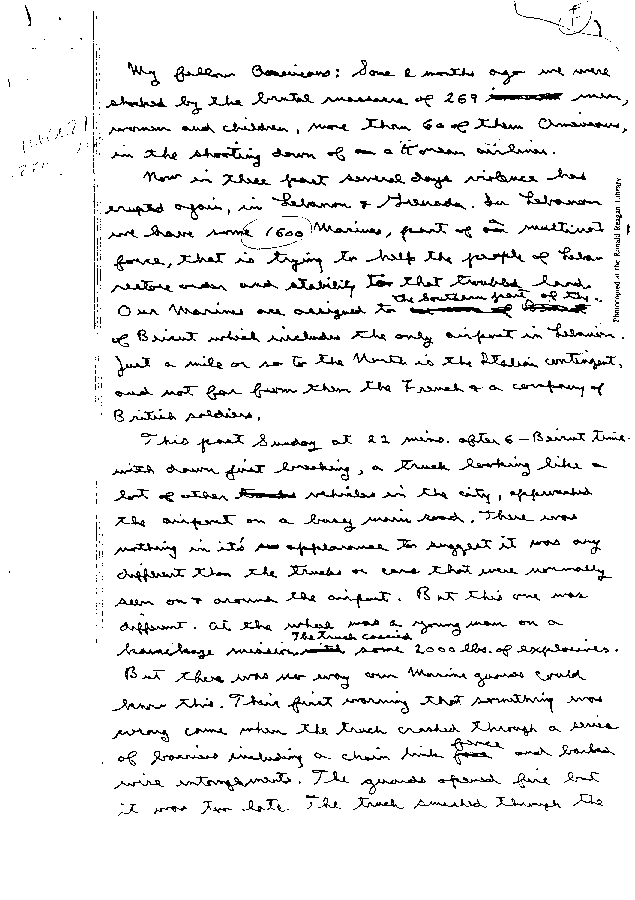 My fellow Americans: Some 2 months ago we were
shocked by the brutal massacre of 269 men,
women and children, more than 60 of them Americans,
in the shooting down of a Korean airliner.
Now in these past several days violence has
erupted again, in Lebanon & Grenada. In Lebanon
we have some 1600 Marines, part of a multinat
force, that is trying to help the people of Leban
restore order and stability to that troubled land.
Our Marines are assigned to the Southern part of the
of Beirut which includes the only airport in Lebanon.
Just a mile or so to the North is the Italian contingent,
and not far from them the French & a company of
British soldiers.
This past Sunday at 22 mins. after 6 – Beirut time
with dawn first breaking, a truck looking like a
lot of other vehicles in the city, approached
the airport on a busy main road. There was
nothing in it's appearance to suggest it was any
different than the trucks or cars that were normally
seen on & around the airport. But this one was
different. At the wheel was a young man on a
kamikaze mission. The truck carried some 2000 lbs. of explosives.
But there was no way our Marine guards could
know this. Their first warning that something was
wrong came when the truck crashed through a series
of barriers including a chain link fence and barbed
wire entanglements. The guards opened fire but
it was too late. The truck smashed through the
Photocopied at the Ronald Reagan Library